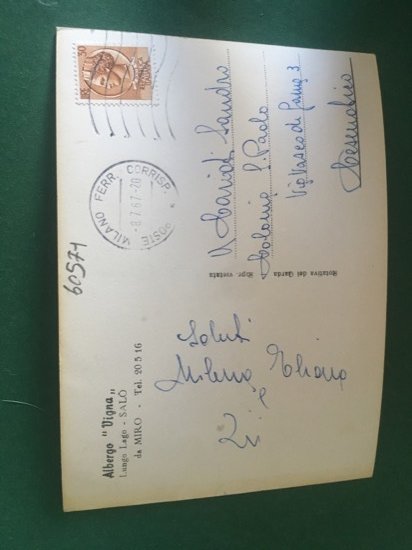 Albergo "Vigna"
Lungo Lago - SALÒ
da MIRO - Tel. 20 5 16
60571
Saluti
Milena Eliana
e
Zii
Rotativa del Garda Ripr. vietata
MILANO FERR. CORRISP. POSTE
-8.7.67-20
30
Sandro
Colonia S. Paolo
Via Vasco di Gama 3
Cesenatico